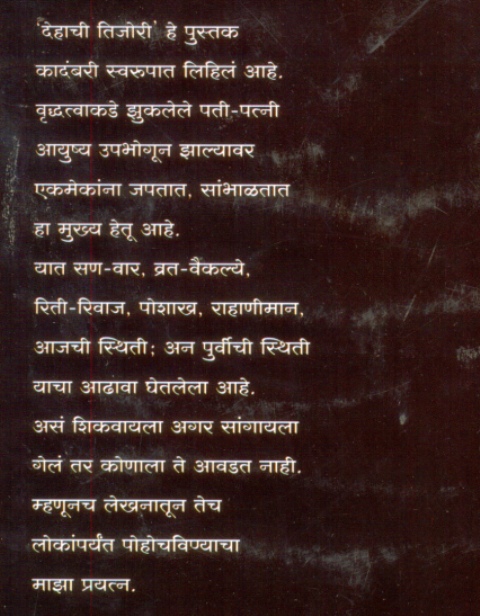 'देहाची तिजोरी' हे पुस्तक
कादंबरी स्वरुपात लिहिलं आहे.
वृद्धत्वाकडे झुकलेले पती-पत्नी
आयुष्य उपभोगून झाल्यावर
एकमेकांना जपतात, सांभाळतात
हा मुख्य हेतू आहे.
यात सण-वार, व्रत-वैकल्ये,
रिती-रिवाज, पोशाख, राहाणीमान,
आजची स्थिती; अन पुर्वीची स्थिती
याचा आढावा घेतलेला आहे.
असं शिकवायला अगर सांगायला
गेलं तर कोणाला ते आवडत नाही.
म्हणूनच लेखनातून तेच
लोकांपर्यंत पोहोचविण्याचा
माझा प्रयत्न.